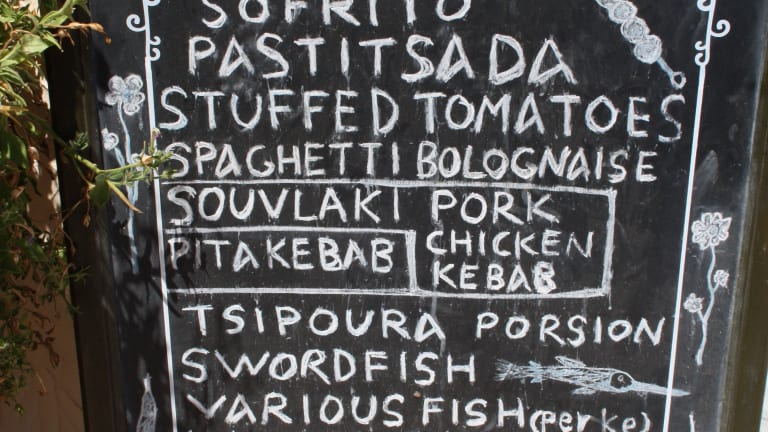 SOFRITO
PASTITSADA
STUFFED TOMATOES
SPAGHETTI BOLOGNAISE
SOUVLAKI PORK
PITA KEBAB CHICKEN
KEBAB
TSIPOURA PORSION
SWORDFISH
VARIOUS FISH (per ke)